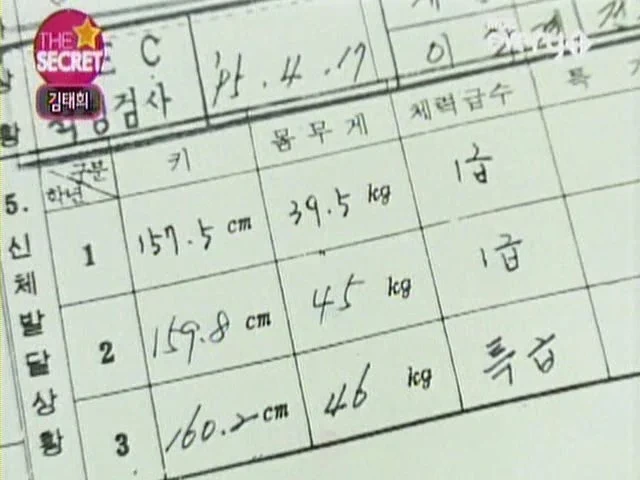 THE
SECRET
김태희
C
적성검사
'95. 4. 17
이
구분
학년
키
몸무게
체력급수
특
5. 신체발달상황
1 157.5 cm 39.5 kg 1급
2 159.8 cm 45 kg 1급
3 160.2 cm 46 kg 특급
상
황